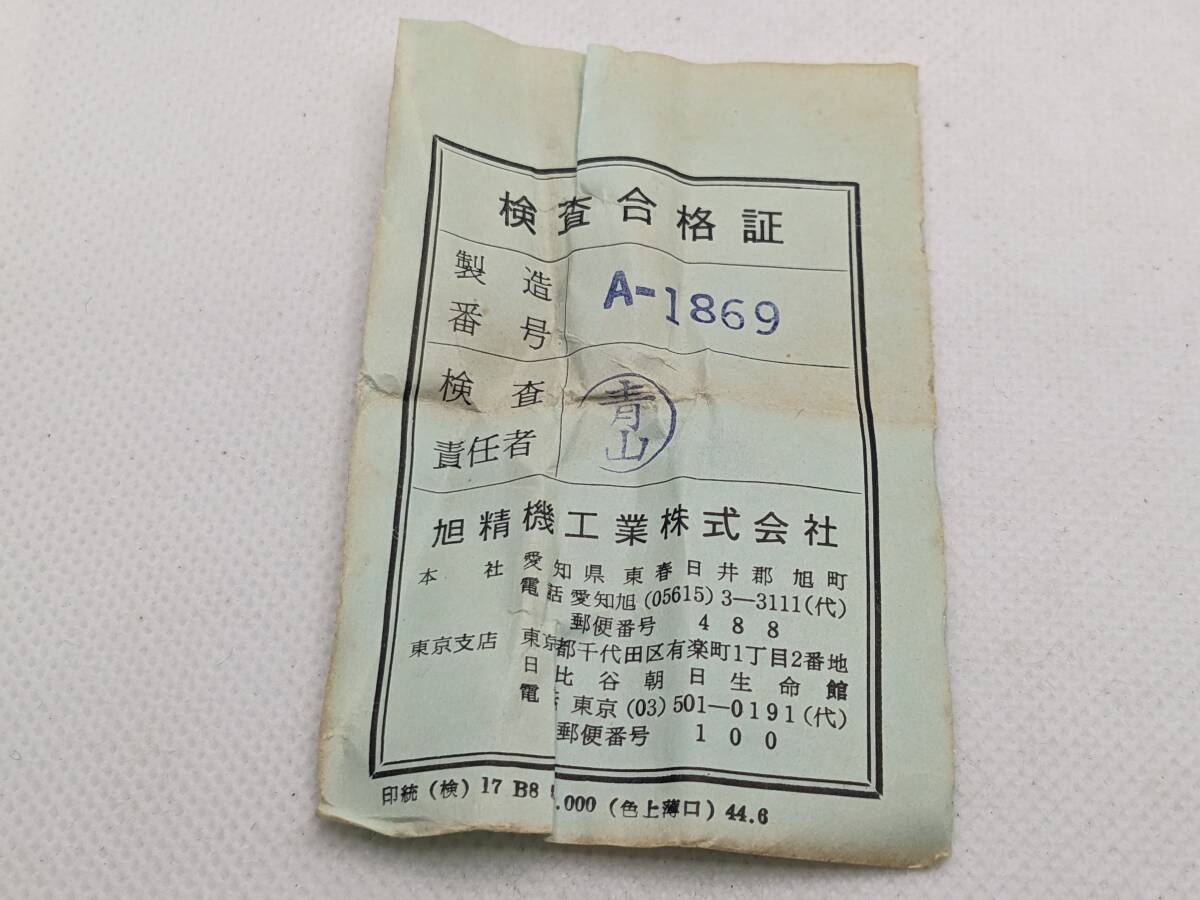 検査合格証
製造 A-1869
番号
検査 青山
責任者
旭精機工業株式会社
本社 愛知県東春日井郡旭町
電話 愛知旭(05615)3―3111(代)
郵便番号 488
東京支店 東京都千代田区有楽町1丁目2番地
日比谷朝日生命館
電話 東京(03)501―0191(代)
郵便番号 100
印統(検)17 B8 .000(色上薄口)44.6